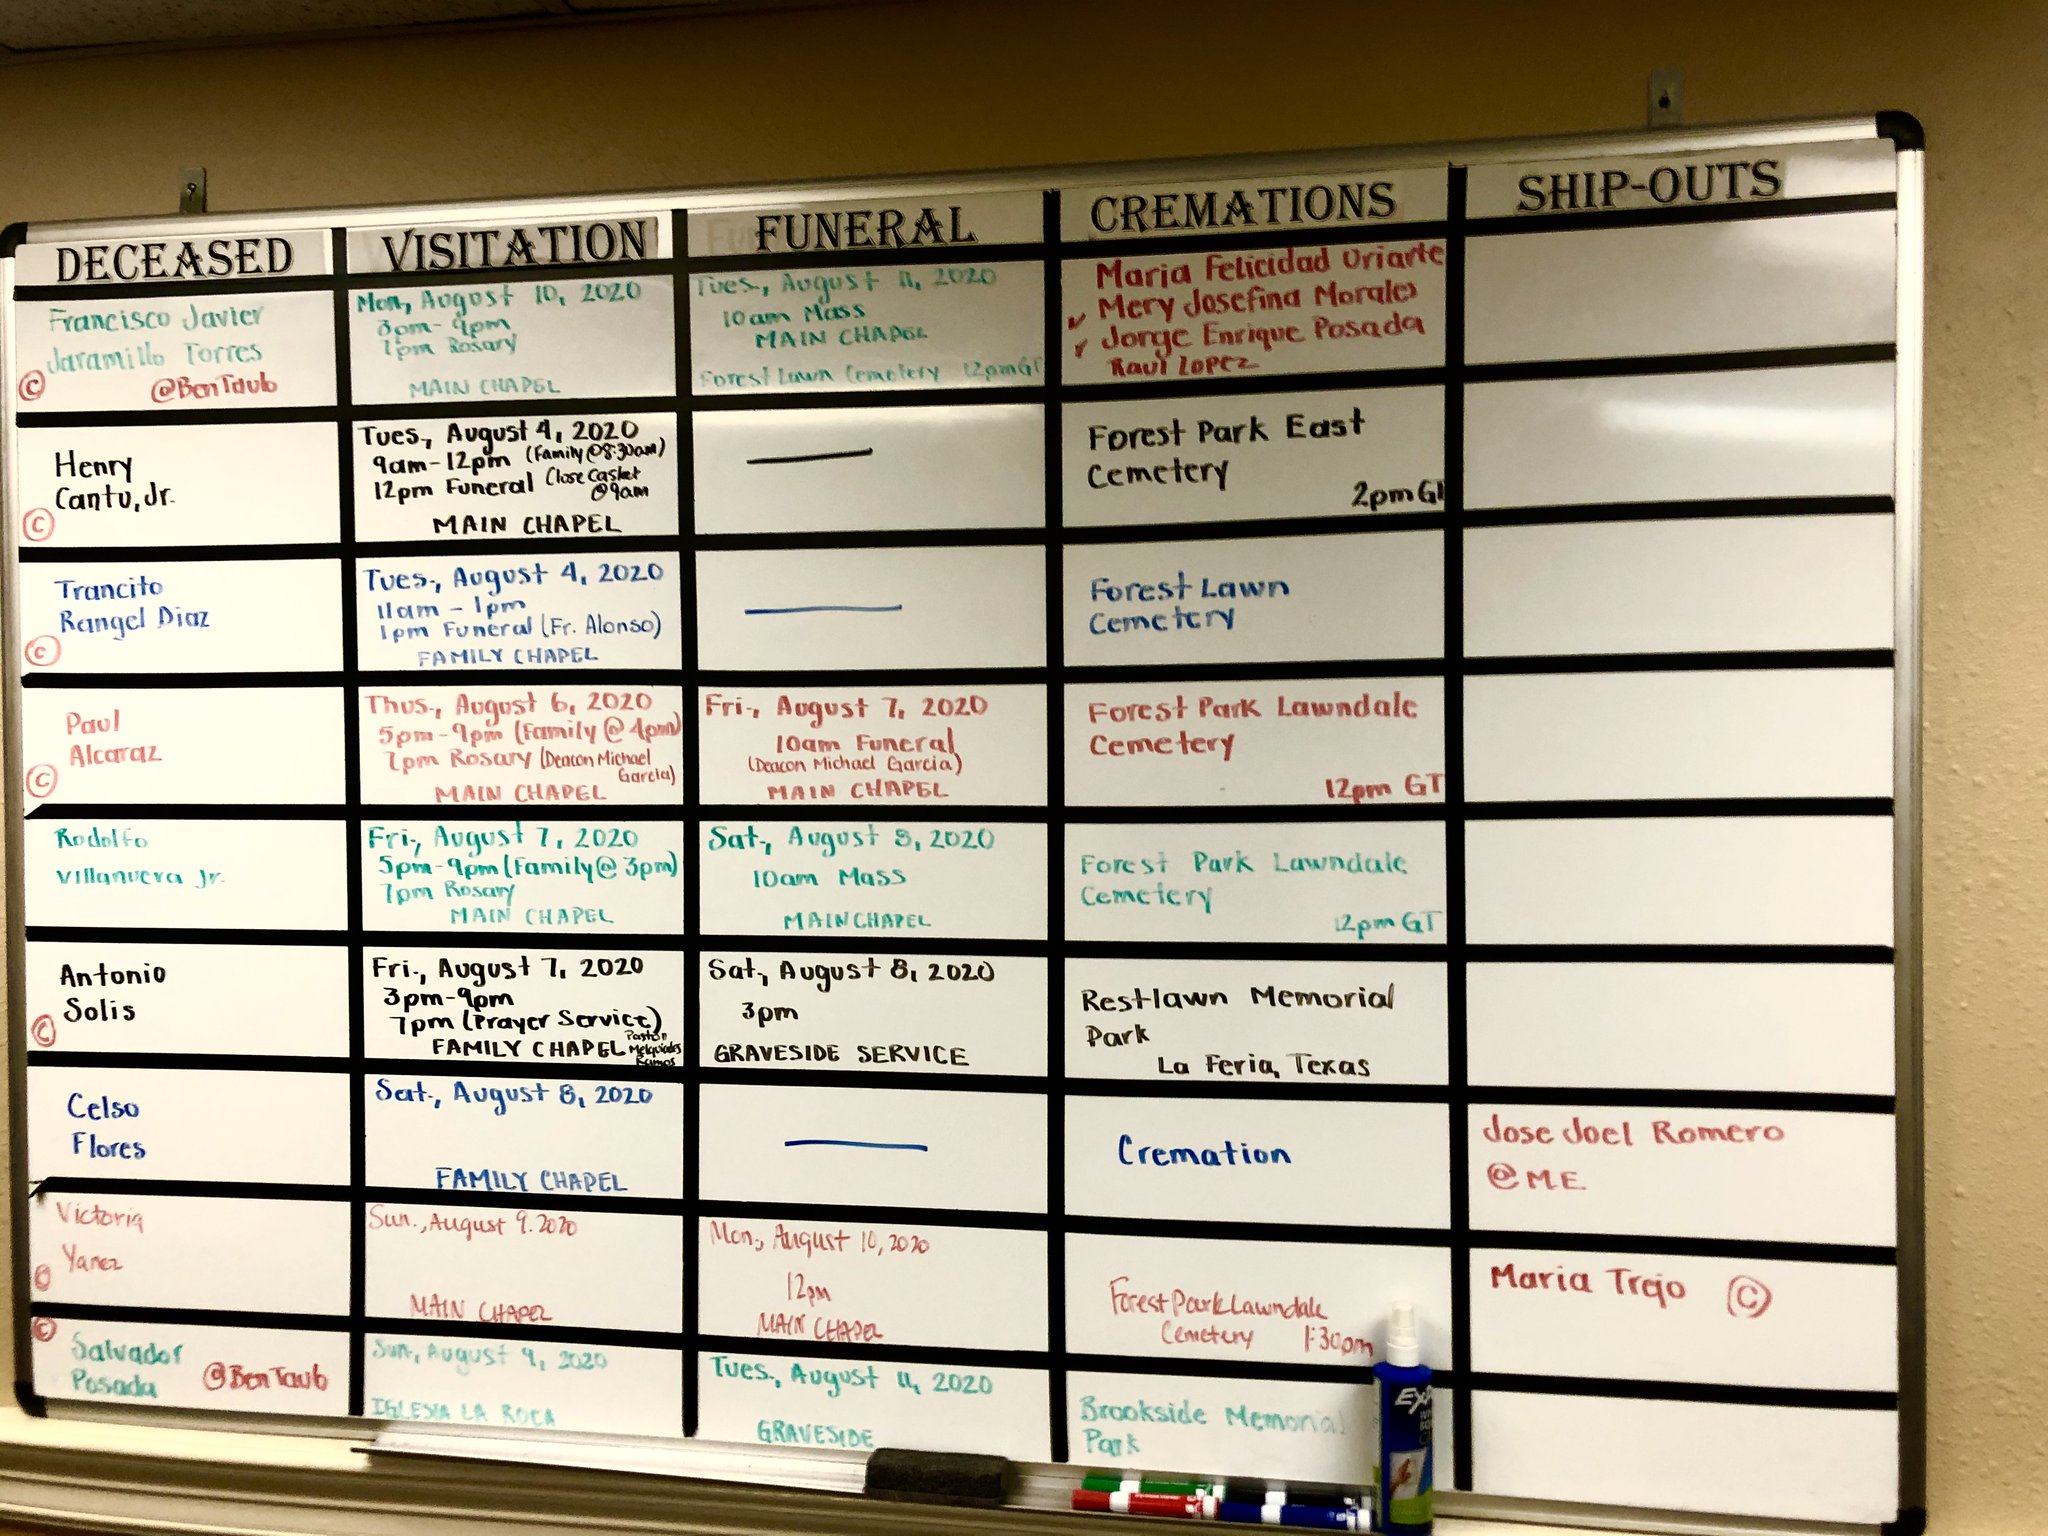 DECEASED VISITATION FUNERAL CREMATIONS SHIP-OUTS
Francisco Javier
Jaramillo Torres
© @BenTaub
Mon, August 10, 2020
3pm-9pm
7pm Rosary
MAIN CHAPEL
Tues., August 11, 2020
10am Mass
MAIN CHAPEL
Forest Lawn Cemetery 12pm GT
Maria Felicidad Uriarte
Mery Josefina Morales
Jorge Enrique Posada
Raul Lopez
Henry
Cantu, Jr.
©
Tues., August 4, 2020
9am-12pm (Family@8:30am)
12pm Funeral Close Casket
@9am
MAIN CHAPEL
Forest Park East
Cemetery
2pm GT
Trancito
Rangel Diaz
©
Tues., August 4, 2020
11am - 1pm
1pm Funeral (Fr. Alonso)
FAMILY CHAPEL
Forest Lawn
Cemetery
Paul
Alcaraz
©
Thus., August 6, 2020
5pm-9pm (Family @ 4pm)
7pm Rosary (Deacon Michael
Garcia)
MAIN CHAPEL
Fri., August 7, 2020
10am Funeral
(Deacon Michael Garcia)
MAIN CHAPEL
Forest Park Lawndale
Cemetery
12pm GT
Rodolfo
Villanueva Jr.
Fri., August 7, 2020
5pm-9pm (Family @ 3pm)
7pm Rosary
MAIN CHAPEL
Sat., August 8, 2020
10am Mass
MAIN CHAPEL
Forest Park Lawndale
Cemetery
12pm GT
Antonio
Solis
©
Fri., August 7, 2020
3pm-9pm
7pm (Prayer Service)
FAMILY CHAPEL Pastor
Melquiades
Ramos
Sat, August 8, 2020
3pm
GRAVESIDE SERVICE
Restlawn Memorial
Park
La Feria, Texas
Celso
Flores
Sat., August 8, 2020
FAMILY CHAPEL
Cremation
Jose Joel Romero
@ M.E.
Victoria
Yanez
©
Sun., August 9. 2020
MAIN CHAPEL
Mon., August 10, 2020
12pm
MAIN CHAPEL
Forest Park Lawndale
Cemetery 1:30pm
Maria Trejo ©
© Salvador
Posada @Ben Taub
Sun, August 9, 2020
IGLESIA LA ROCA
Tues., August 11, 2020
GRAVESIDE
Brookside Memorial
Park